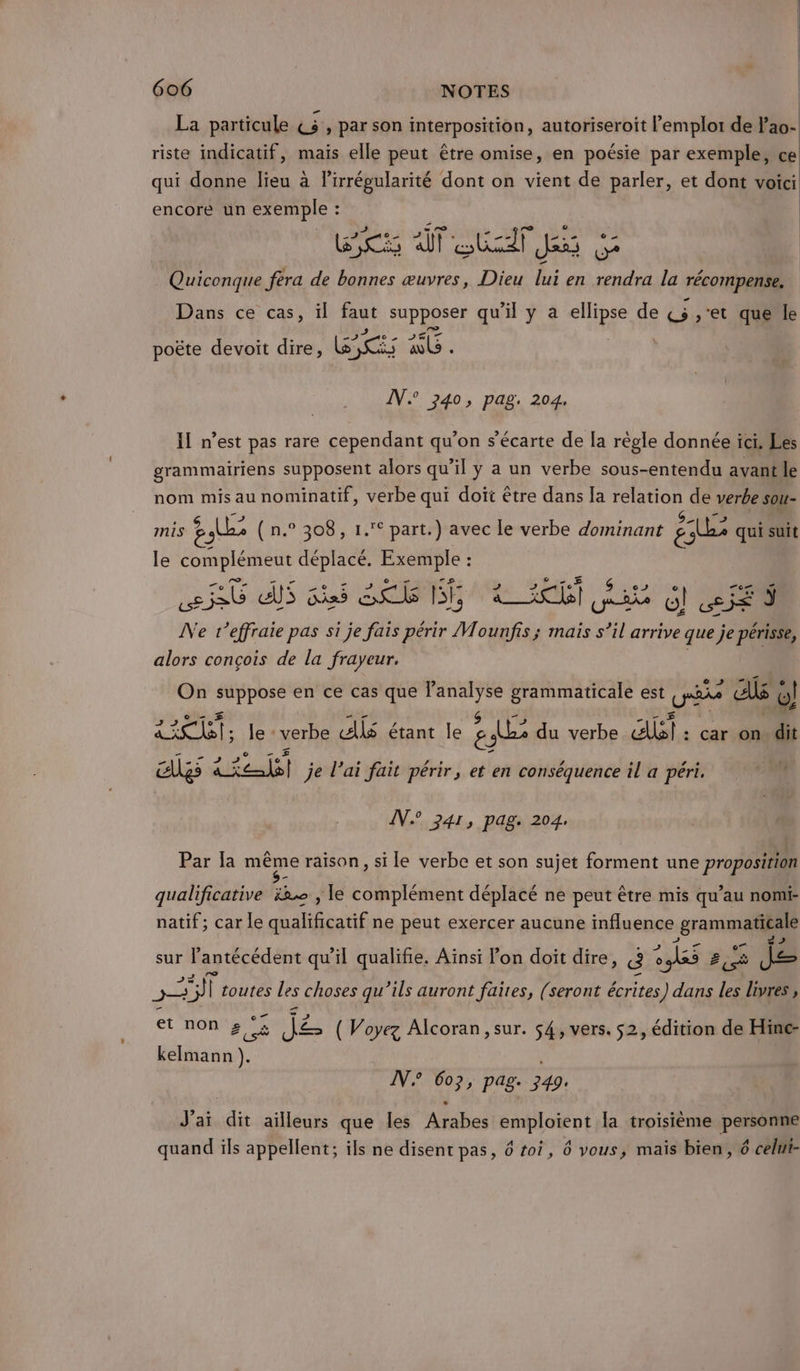 606 NOTES
La particule فَ, par son interposition, autoriseroit l'emploi de l'ao-
riste indicatif, mais elle peut être omise, en poésie par exemple, ce
qui donne lieu à l'irrégularité dont on vient de parler, et dont voici
encore un exemple :
مَن يَفْعَلِ ٱلْحَسَنَاتِ ٱللَّهُ يَشْكُرُهَا
Quiconque fera de bonnes œuvres, Dieu lui en rendra la récompense.
Dans ce cas, il faut supposer qu'il y a ellipse de فَ, et que le
poëte devoit dire, فَٱللَّهُ يَشْكُرُهَا.
N.° 340, pag. 204.
Il n'est pas rare cependant qu'on s'écarte de la règle donnée ici. Les
grammairiens supposent alors qu'il y a un verbe sous-entendu avant le
nom mis au nominatif, verbe qui doit être dans la relation de verbe sou-
mis مُطَاوِعٌ (n.° 308, 1.re part.) avec le verbe dominant مُطَاوَعٌ qui suit
le complémeut déplacé. Exemple :
لَا تَجْزَعِى إِنْ مُنْفِسٌ أَهْلَكْتُهُ وَإِذَا هَلَكْتُ فَعِنْدَ ذٰلِكَ فَٱجْزَعِى
Ne t'effraie pas si je fais périr Mounfis ; mais s'il arrive que je périsse,
alors conçois de la frayeur.
On suppose en ce cas que l'analyse grammaticale est إِنْ هَلَكَ مُنْفِسٌ
أَهْلَكْتُهُ; le verbe هَلَكَ étant le مُطَاوِعٌ du verbe أَهْلَكَ : car on dit
أَهْلَكْتُهُ فَهَلَكَ je l'ai fait périr, et en conséquence il a péri.
N.° 341, pag. 204.
Par la même raison, si le verbe et son sujet forment une proposition
qualificative صِفَةٌ, le complément déplacé ne peut être mis qu'au nomi-
natif; car le qualificatif ne peut exercer aucune influence grammaticale
sur l'antécédent qu'il qualifie. Ainsi l'on doit dire, كُلُّ شَىْءٍ فَعَلُوهُ فِى
ٱلزُّبُرِ toutes les choses qu'ils auront faites, (seront écrites) dans les livres,
et non كُلَّ شَىْءٍ (Voyez Alcoran, sur. 54, vers. 52, édition de Hinc-
kelmann).
N.° 603, pag. 349.
J'ai dit ailleurs que les Arabes emploient la troisième personne
quand ils appellent; ils ne disent pas, ô toi, ô vous, mais bien, ô celui-